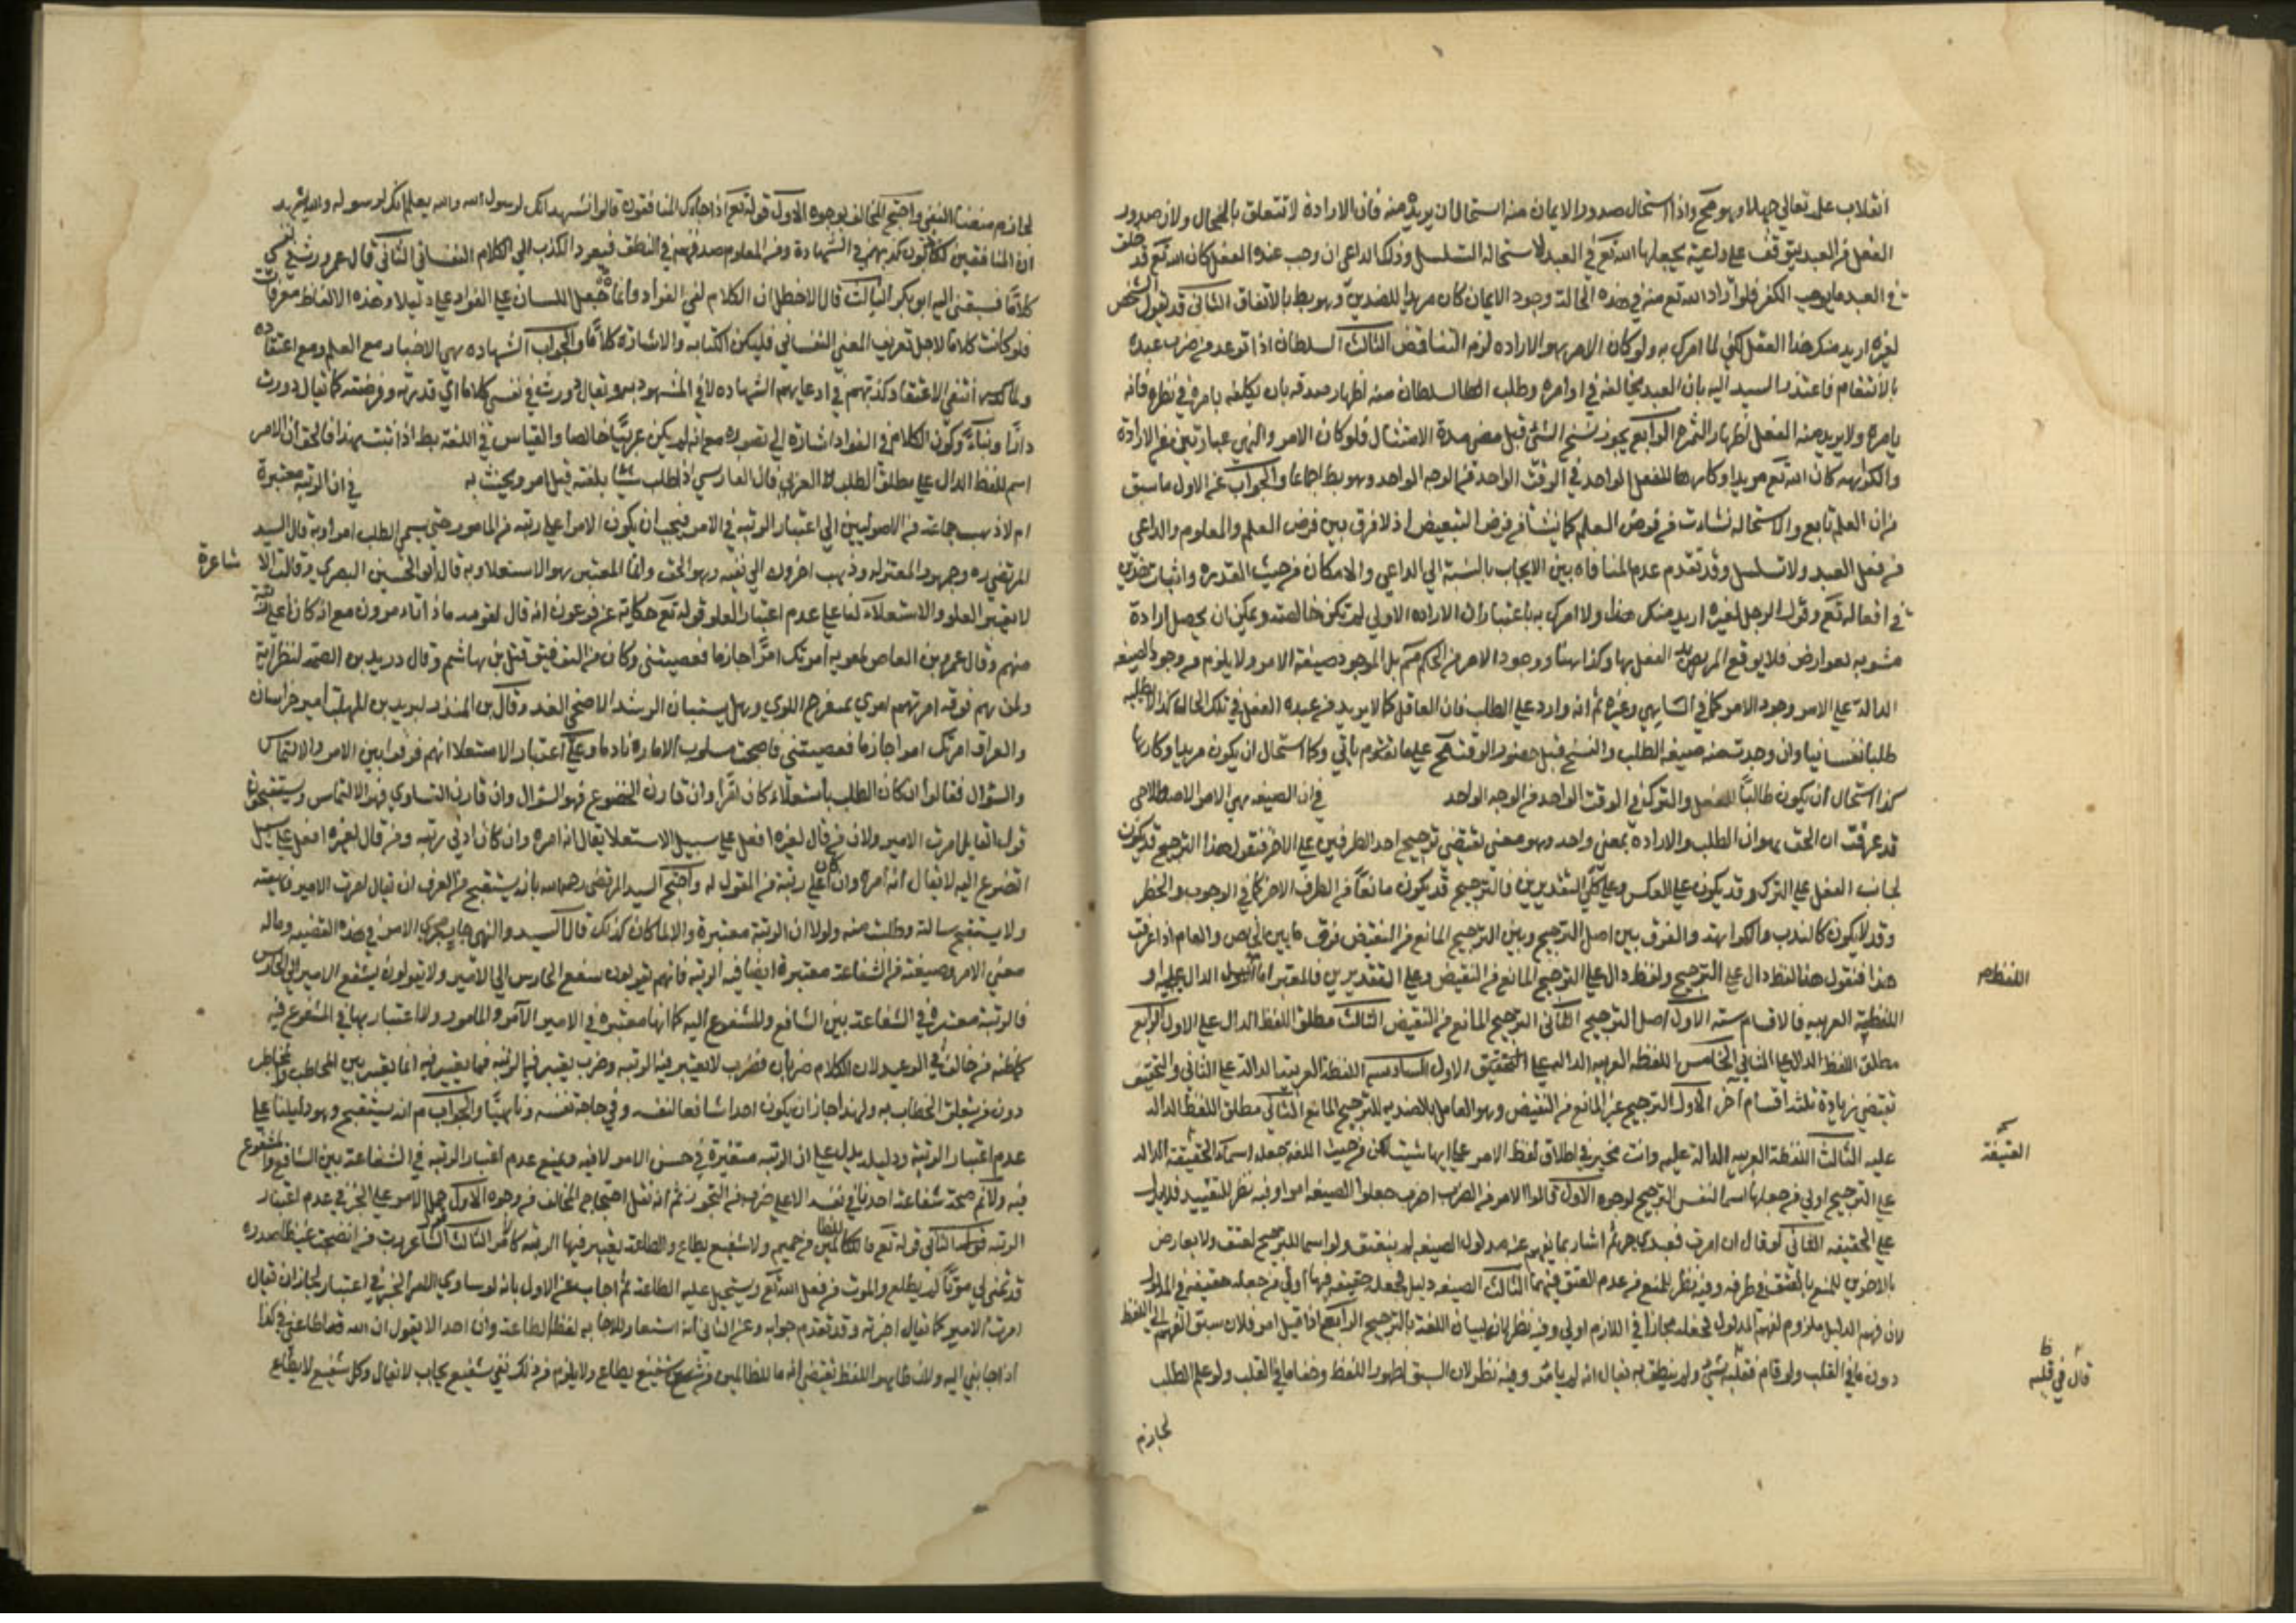 انقلاب علمه تعالى جهلا وهو مح واذا استحال صدور الايمان منه استحال ان يريده منه فان الارادة لا تتعلق بالمحال ولان صدور
الفعل من العبد يتوقف على داعية يجعلها الله تع في العبد لاستحالة التسلسل وذلك الداعي ان وجب عنده الفعل كان الله تع قد خلق
في العبد ما يوجب الكفر فلو اراد الله تع منه في هذه الحالة وجود الايمان كان مريدا للضدين وهو بط بالاتفاق الثاني قد يقول الشخص
لغيره اريد منك هذا الفعل لكني لا امرك به ولو كان الامر هو الاراده لزم التناقض الثالث السلطان اذا توعد من ضرب عبده
بالانتقام فاعتذر السيد اليه بان العبد يخالفه في اوامره وطلب السلطان منه اظهار صدقه بان يكلفه بامر في نظره فانه
يامره ولا يريد منه الفعل لظهار التمرد الرابع يجوز نسخ الشئ قبل مضي مدة الامتثال فلو كان الامر والنهي عبارتين عن الارادة
والكراهه كان الله تع مريدا وكارها للفعل الواحد في الوقت الواحد من الوجه الواحد وهو بط اجماعا والجواب عن الاول ما سبق
من ان العلم تابع والاستحاله نشات من فرض العلم كما ينشأ من فرض النقيض اذ لا فرق بين فرض العلم والمعلوم والداعي
من فعل العبد ولا تسلسل وقد تقدم عدم المنافاه بين الايجاب بالنسبة الى الداعي والامكان من حيث القدره واثبات
في افعاله تع وقول الرجل لغيره اريد منك هذا ولا امرك به باعتبار ان الاراده الاولى لم تكن خالصة ويمكن ان يحصل ارادة
مشوبه لعوارض فلا يوقع المريد الفعل بها وكذا هنا ووجود الامر من الحكم مم بل الموجود صيغة الامر ولا يلزم من وجود الصيغه
الدالة على الامر وجود الامر كما في الساهي وغيره ثم انه وارد على الطلب فان العاقل كما لا يريد من عبده الفعل في تلك الحال كذا لا يطلبه
طلبا نفسانيا وان وجدت منه صيغه الطلب والنسخ قبل حضور الوقت مح على ما سياتي وكما استحال ان يكون مريدا وكارها
كذا استحال ان يكون طالبا للفعل والترك في الوقت الواحد من الوجه الواحد في ان الصيغه هي الامر الاصطلاحي
قد عرفت ان الحق هو ان الطلب والاراده بمعنى واحد وهو معنى يقتضي ترجيح احد الطرفين على الاخر فنقول هذا الترجيح قد يكون
لجانب الفعل على الترك وقد يكون على العكس وعلى كلي التقديرين فالترجيح قد يكون مانعا من الطرف الاخر كما في الوجوب والحظر
وقد لا يكون كالندب والكراهة والفرق بين اصل الترجيح وبين الترجيح المانع من النقيض فرق ما بين الخاص والعام اذا عرفت
هذا فنقول هنا لفظ دال على الترجيح ولفظ دال على الترجيح المانع من النقيض وعلى التقديرين فالمعتبر اما الدال عليه او
اللفظ
اللفظة العربيه فالاقسام سته الاول اصل الترجيح الثاني الترجيح المانع من النقيض الثالث مطلق اللفظ الدال على الاول الرابع
مطلق اللفظ الدال على الثاني الخامس اللفظه العربيه الداله على الاول السادس اللفظة العربية الدالة على الثاني والتحقيق
تقتضي زيادة ثلثة اقسام أخر الاول الترجيح غير المانع من النقيض وهو المقابل بالضدية للترجيح المانع الثاني مطلق اللفظ الدال
عليه الثالث اللفظة العربيه الدالة عليه وانت مخير في اطلاق لفظ الامر على ايها شئت لكن من حيث اللغه جعله اسما للحقيقة الدالة
على الترجيح اولى من جعلها اسما لنفس الترجيح لوجوه الاول قالوا الامر من الضرب اضرب جعلوا الصيغه امرا وفيه نظر للتقييد فلا يدل
على الحقيقه الثاني لو قال ان امرت فعبدي حر ثم اشار بما يفهم عنه مدلول الصيغه لم ينعتق ولو اسما للترجيح لعتق ولا يعارض
بالاخرس للمنع بالعتق من طرفه وفيه نظر للمنع من عدم العتق فيهما الثالث الصيغه دليل فجعله حقيقه فيها اولى من جعله حقيقه في المدلول
لان فهم الدليل ملزوم لفهم المدلول فجعله مجازا في اللازم اولى وفيه نظر الرابع اذا قيل امر فلان سبق الفهم الى اللفظ
دون ما في القلب ولو قام بقلبه شئ ولم ينطق به يقال انه لم يامر وفيه نظر لان السبق لظهور اللفظ وخفا ما في القلب ولو علم الطلب
قال في قلبه
لجازم
لجازم منعنا النفي واحتج المخالف بوجوه الاول قوله تع اذا جاءك المنافقون قالوا نشهد انك لرسول الله والله يعلم انك لرسوله والله يشهد
ان المنافقين لكاذبون كذبهم في الشهادة ومن المعلوم صدقهم في النطق فيعود الكذب الى الكلام النفساني الثاني قال عمر زورت في نفسي
كلاما فسبقني اليه ابو بكر الثالث قال الاخطل ان الكلام لفي الفؤاد وانما جعل اللسان على الفؤاد دليلا وهذه الالفاظ معرفات
فلو كانت كلاما لاجل تعريف المعنى النفساني فليكن الكتابه والاشارة كلاما والجواب الشهاده هي الاخبار مع العلم ومع اعتقاده
ولما انتفى الاعتقاد كذبهم في ادعائهم الشهاده لا في المشهود به ويقال زورت في نفسي كلاما اي قدرته وفرضته كما يقال زورت
دارا وبناء وكون الكلام في الفؤاد اشارة الى تصوره مع انه لم يكن عربيا خالصا والقياس في اللغة بط اذا ثبت هذا فالحق ان الامر
اسم للفظ الدال على مطلق الطلب العربي فان الفارسي اذا طلب شيا بلغته قيل امر ويحنث به في ان الرتبه معتبرة
ام لا ذهب جماعة من الاصوليين الى اعتبار الرتبه في الامر فيجب ان يكون الامر اعلى رتبه من المامور حتى يسمى الطلب امرا وبه قال السيد
المرتضى ره وجمهور المعتزله وذهب اخرون الى نفيه وهو الحق وانما المعتبر هو الاستعلا وبه قال ابو الحسين البصري وقالت الاشاعرة
لا يعتبر العلو والاستعلاء لنا على عدم اعتبار العلو قوله تع حكاية عن فرعون انه قال لقومه ماذا تامرون مع انه كان اعلى رتبة
منهم وقال عمرو بن العاص لمعويه امرتك امرا جازما فعصيتني وكان من التوفيق قتل بن هاشم وقال دريد بن الصمه لنظرائه
ولمن هم فوقه امرتهم امري بمنعرج اللوى وهل يستبان الرشد الا ضحى الغد وقال بن المنذر ليزيد بن المهلب امير خراسان
والعراق امرتك امرا جازما فعصيتني فاصبحت مسلوب الاماره نادما وعلى اعتبار الاستعلا انهم فرقوا بين الامر والالتماس
والسؤال فقالوا ان كان الطلب باستعلاء كان امرا وان قارن الخضوع فهو السؤال وان قارن التساوي فهو الالتماس ويستقبحون
قول القايل امرت الامير ولان من قال لغيره افعل على سبيل الاستعلا يقال انه امره وان كان ادنى رتبه ومن قال لغيره افعل على سبيل
التضرع اليه لا يقال انه امره وان كان اعلى رتبة من المقول له واحتج السيد المرتضى رحمه الله بانه يستقبح من العرف ان يقال امرت الامير ونهيته
ولا يستقبح سالته وطلبت منه ولولا ان الرتبة معتبرة والا لما كان كذلك قال السيد والنهي جار مجرى الامر في هذه القضيه وماله
معنى الامر وصيغته من الشفاعة معتبرة ايضا فيه الرتبه فانهم يقولون شفع الحارس الى الامير ولا يقولون شفع الامير الى الحارس
فالرتبة معتبرة في الشفاعة بين الشافع والمشفوع اليه كما انها معتبره في الامر بين الآمر والمامور ولا اعتبار بها في المشفوع فيه
كما ظنه من خالف في الوعيد لان الكلام ضربان فضرب لا يعتبر فيه الرتبه وضرب يعتبر فيه الرتبه فما يعتبر فيه انما يعتبر بين المخاطب والمخاطب
دون من يتعلق الخطاب به ولهذا جاز ان يكون احدنا شافعا لنفسه وفي حاجة نفسه والجواب مم انه يستقبح وهو دليلنا على
عدم اعتبار الرتبه ودليله يدل على ان الرتبه معتبرة في حسن الامر لا فيه ويمنع عدم اعتبار الرتبه في الشفاعة بين الشافع والمشفوع
فيه ولانه صحة شفاعة احدنا في نفسه الا على ضرب من التجوز ثم انه نقل احتجاج المخالف من وجوه الاول حمل الامر على الخبر في عدم اعتبار
الرتبه الثاني قوله تع ما للظالمين من حميم ولا شفيع يطاع والطاعة يعتبر فيها الرتبه كالامر الثالث قول الشاعر رب من انضجت غيظا صدره
قد تمنى لي موتا لم يطع والموت من فعل الله تع ويستحيل عليه الطاعة ثم اجاب عن الاول بانه لو ساوى الامر الخبر في اعتباره لجاز ان يقال
امرت الامير كما يقال اخبرته وقد تقدم جوابه وعن الثاني انه استعار للاجابه لفظ الطاعة وان احدا لا يقول ان الله قد اطاعني في كذا
اذا اجابني اليه ولان ظاهر اللفظ يقتضي انه ما للظالمين من شفيع يطاع ولا يلزم من ذلك نفي شفيع يجاب لا يقال وكل شفيع لا يطاع